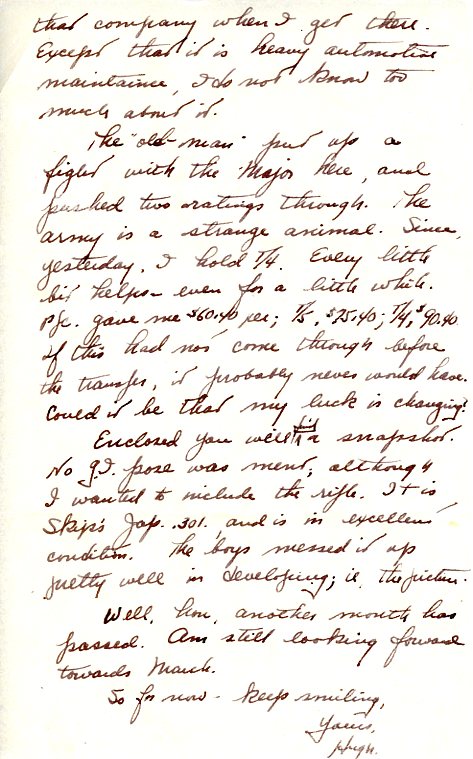 that company when I get there.
Except that it is heavy automotive
maintaince, I do not know too
much about it.
The "old-man" put up a
fight with the Major here, and
pushed two ratings through. The
army is a strange animal. Since
yesterday, I hold T/4. Every little
bit helps - even for a little while.
Pfc. gave me $60.40 per; T/5, $75.40; T/4, $90.40.
If this had not come through before
the transfer, it probably never would have.
Could it be that my luck is changing?
Enclosed you will find a snapshot.
No G.I. pose was ment, although
I wanted to include the rifle. It is
Skip's Jap. .301, and is in excellent
condition. The boys messed it up
pretty well in developing; ie, the picture.
Well, hon, another month has
passed. Am still looking forward
towards March.
So for now - keep smiling,
Yours,
Hugh.